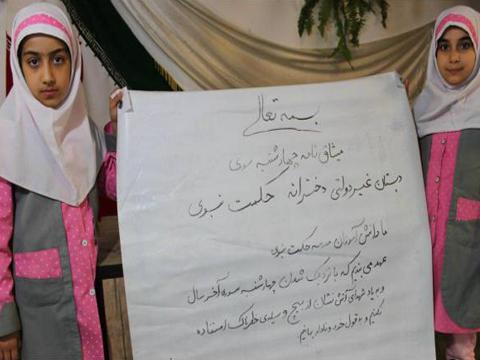 بسمه تعالی
میثاق نامه چهارشنبه سوری
دبستان غیر دولتی دخترانه حکمت نبوی
ما دانش آموزان مدرسه حکمت نبوی
عهد می بندیم که با نزدیک شدن چهارشنبه سوری آخر سال
و به یاد شهدای آتش نشان از هیچ وسیله‌ی خطرناک استفاده
نکنیم و به قول خود وفادار بمانیم